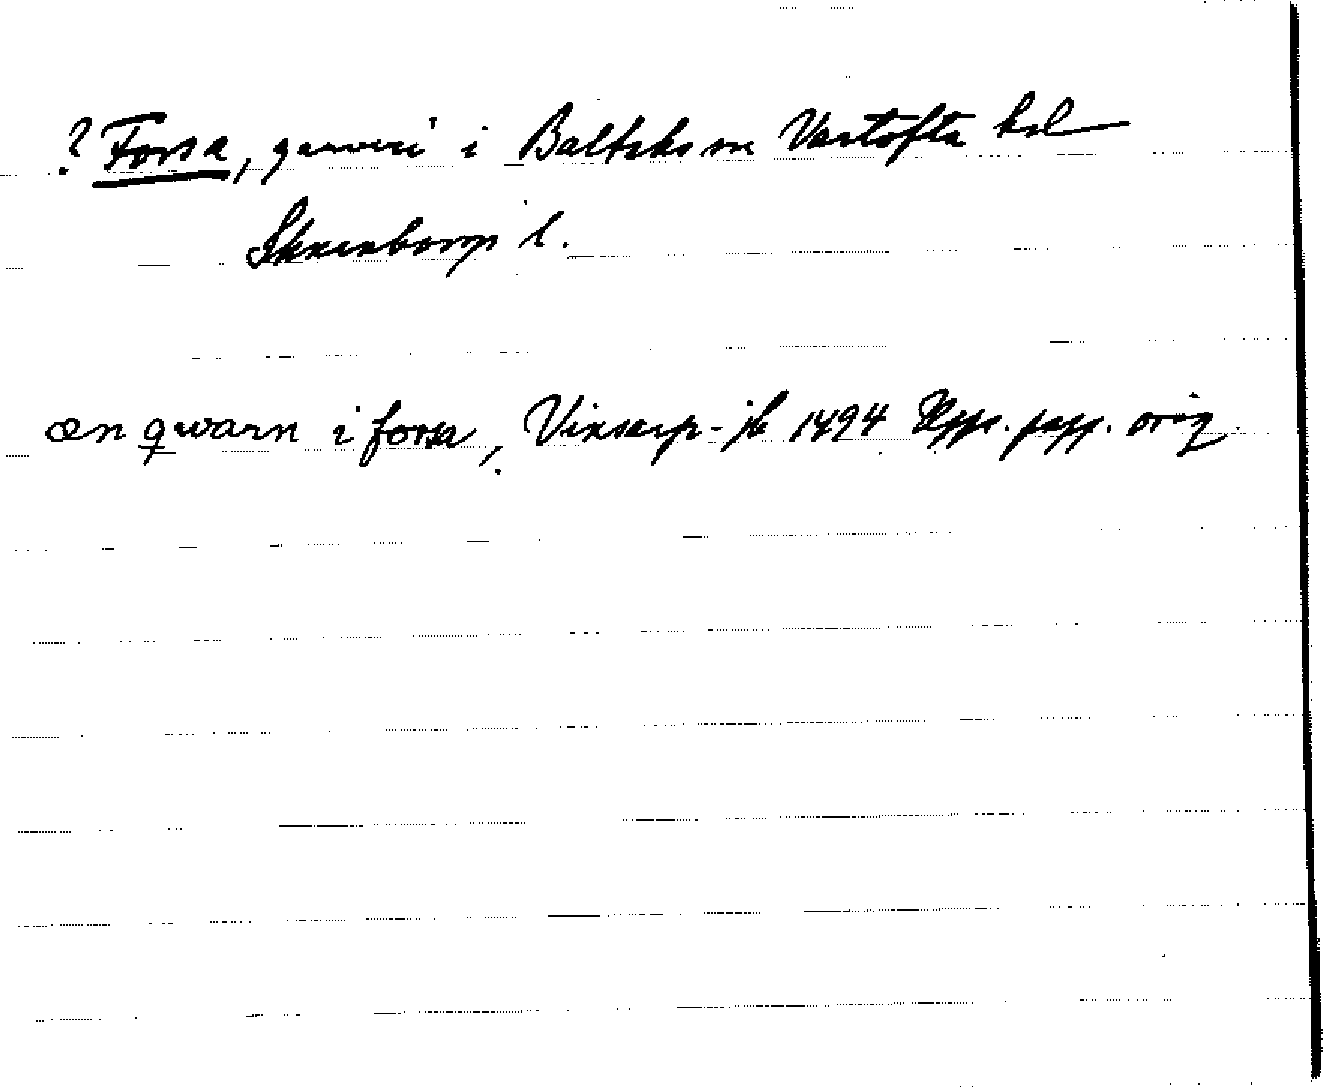 ? Forsa, garveri i Baltaks sn Vartofta hd
Skaraborgs l.
æn qwarn i forsa, Vinsarp-jb 1494 Upps. papp. orig.